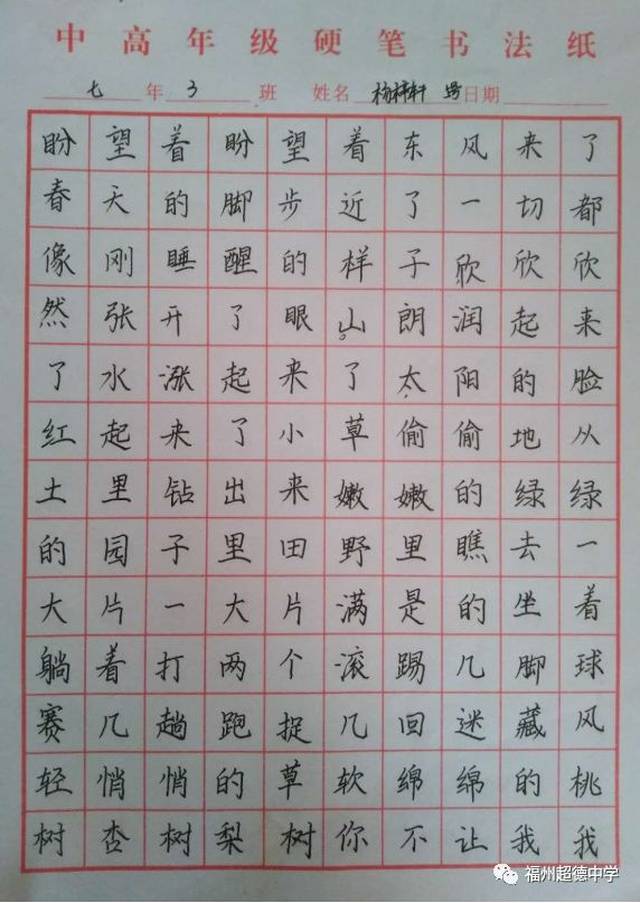 中高年级硬笔书法纸
七年3班 姓名 杨梓轩 号 日期
盼望着盼望着东风来了
春天的脚步近了一切都
像刚睡醒的样子欣欣欣
然张开了眼山朗润起来
了水涨起来了太阳的脸
红起来了小草偷偷地从
土里钻出来嫩嫩的绿绿
的园子里田野里瞧去一
大片一大片满是的坐着
躺着打两个滚踢几脚球
赛几趟跑捉几回迷藏风
轻悄悄的草软绵绵的桃
树杏树梨树你不让我我
福州超德中学